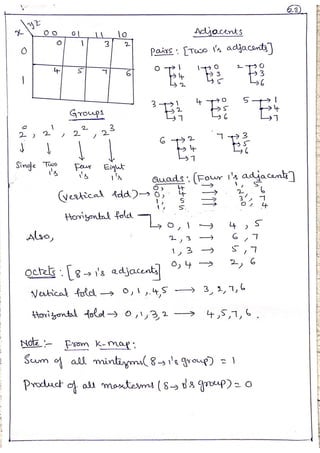 x yz 00 01 11 10
0 0 1 3 2
1 4 5 7 6
Groups
2⁰, 2¹, 2², 2³
↓ ↓ ↓ ↓
Single Two Four Eight
1's 1's 1's
Adjacents
Pairs: [Two 1's adjacents]
0 → 1 1 → 0 2 → 0
→ 4 → 3 → 3
→ 2 → 5 → 6
3 → 1 4 → 0 5 → 1
→ 2 → 5 → 4
→ 7 → 6 → 7
6 → 2 7 → 3
→ 4 → 5
→ 7 → 6
Quads: [Four 1's adjacents]
(Vertical fold) → 0, 4 → 1, 5
0, 4 → 2, 6
1, 5 → 3, 7
1, 5 → 0, 4
Horizontal fold
→ 0, 1 → 4, 5
Also, 2, 3 → 6, 7
1, 3 → 5, 7
0, 4 → 2, 6
Octets: [8 → 1's adjacents]
Vertical fold → 0, 1, 4, 5 → 3, 2, 7, 6
Horizontal fold → 0, 1, 3, 2 → 4, 5, 7, 6.
Note:- From K-map:
Sum of all minterms (8 → 1's group) = 1
Product of all maxterms (8 → 0's group) = 0